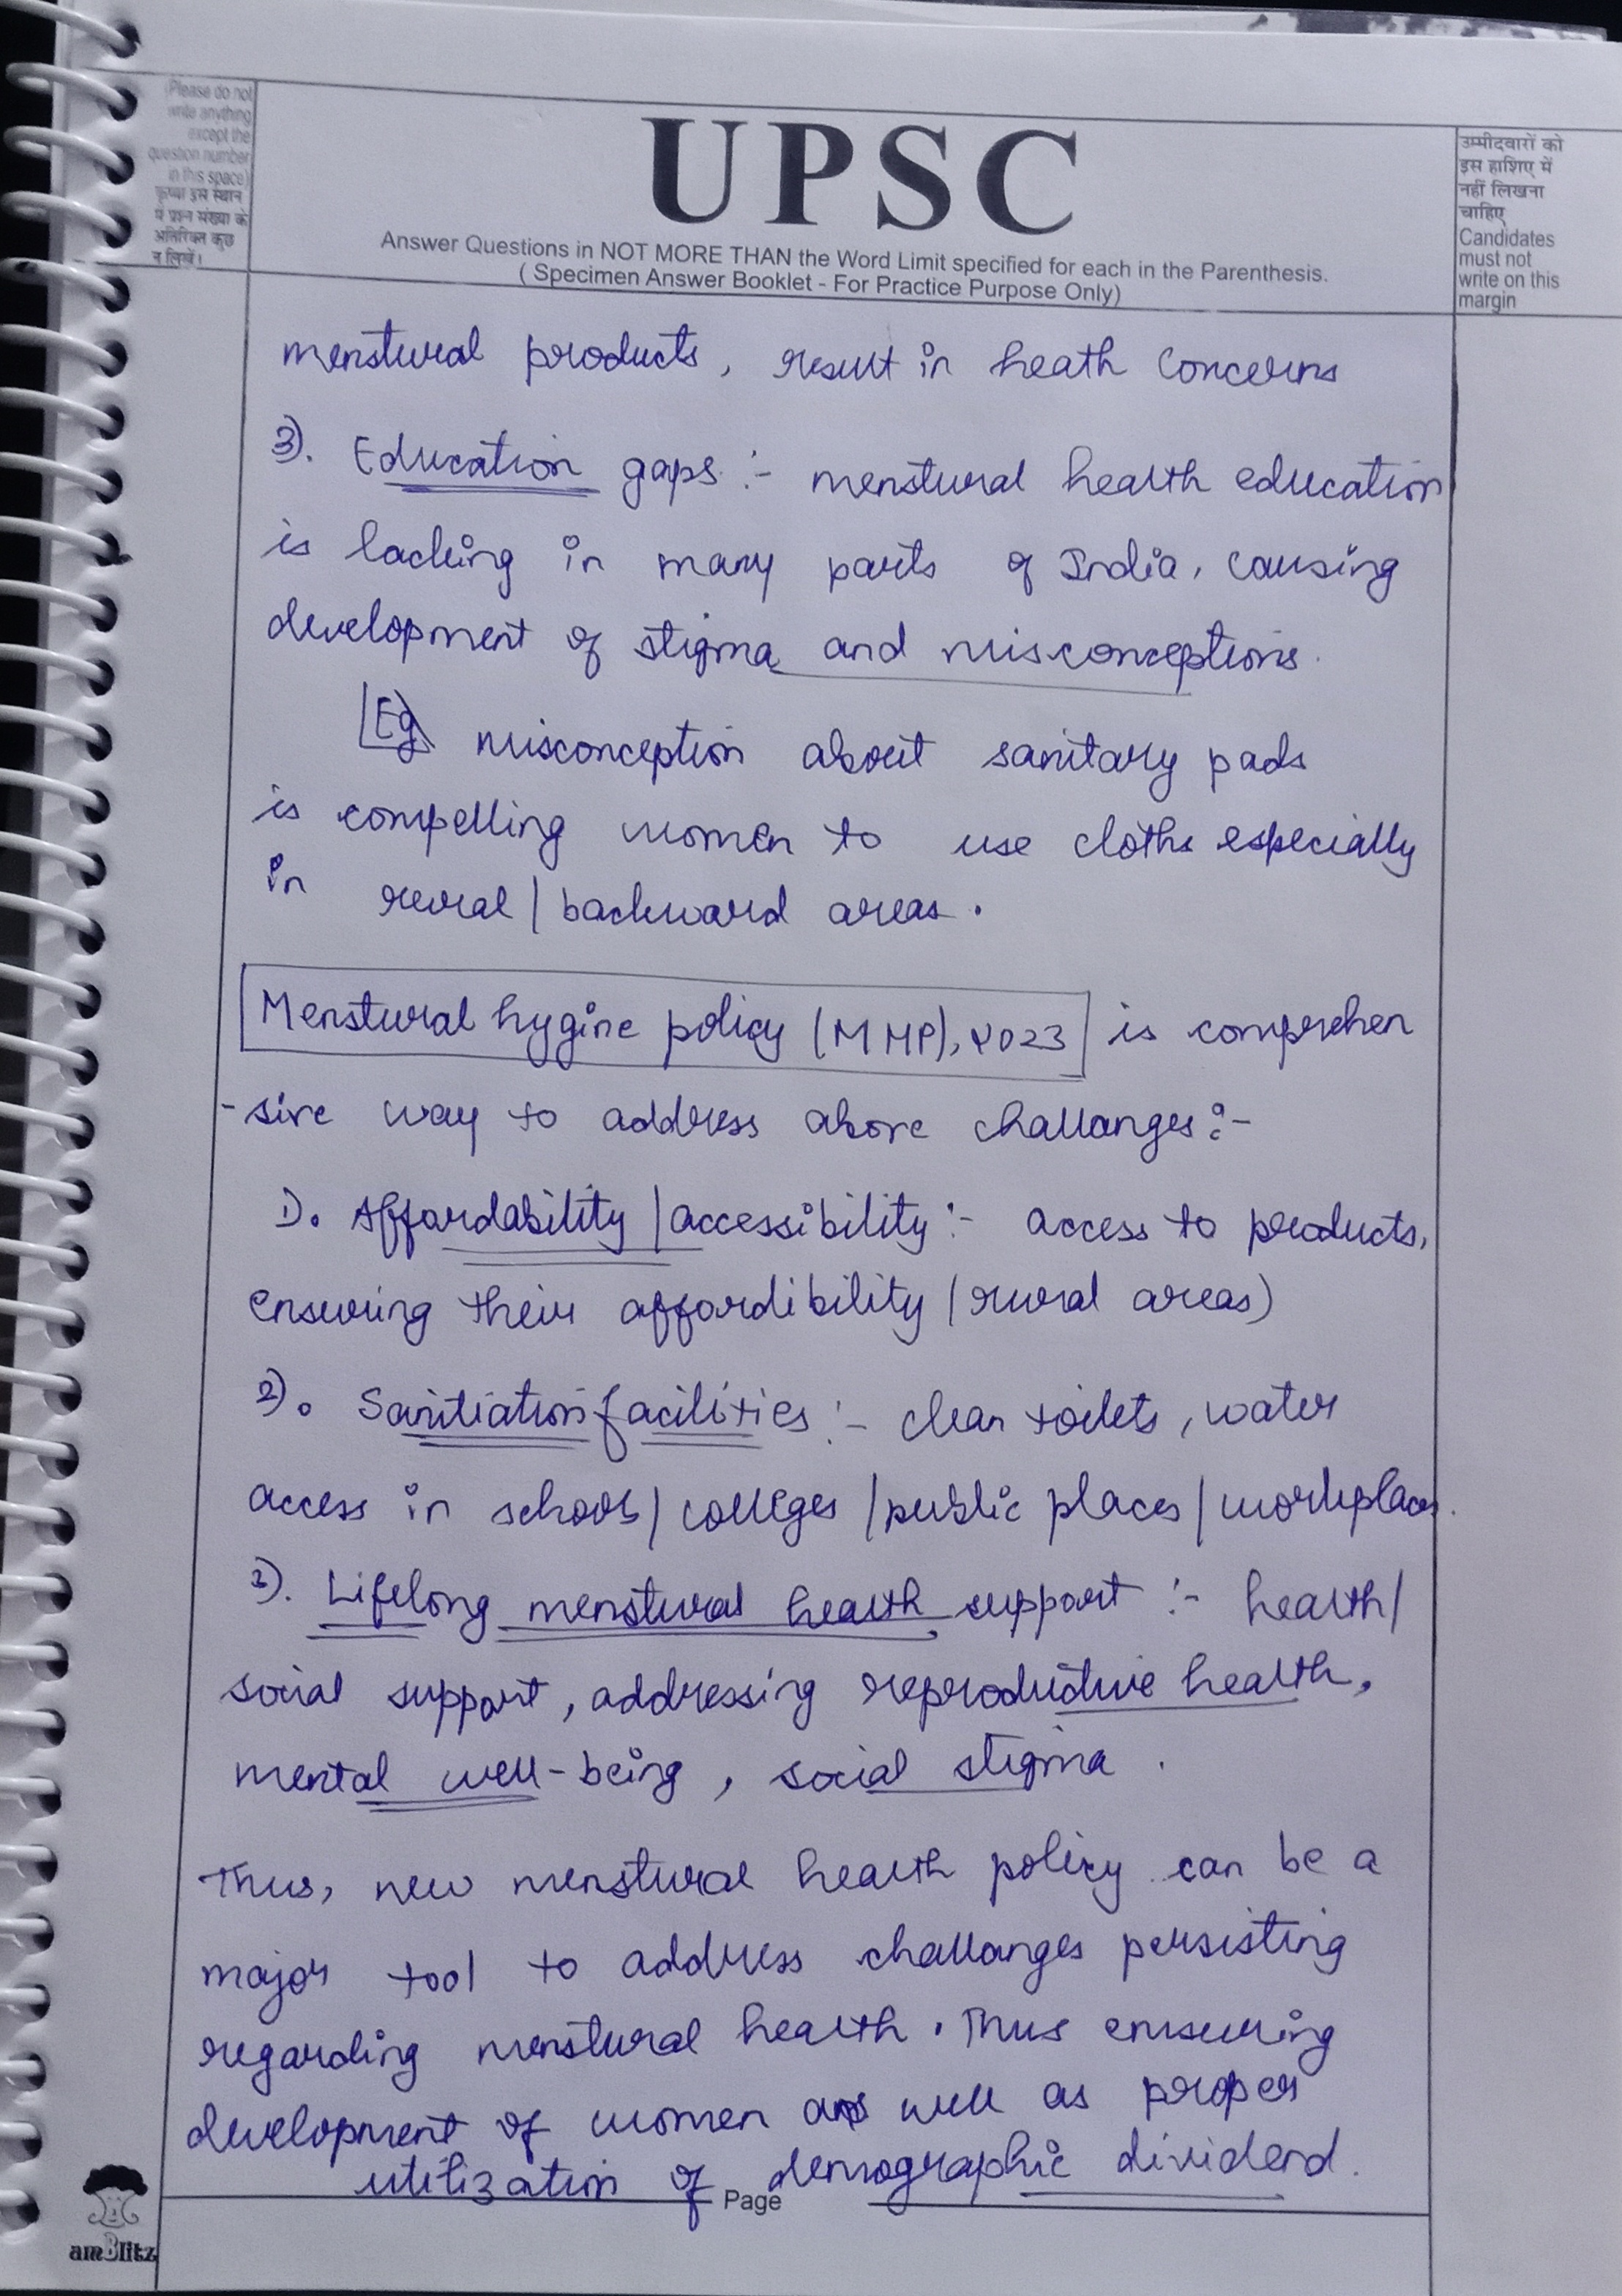 (Please do not
write anything
except the
question number
in this space)
कृपया इस स्थान
में प्रश्न संख्या के
अतिरिक्त कुछ
न लिखें।
UPSC
Answer Questions in NOT MORE THAN the Word Limit specified for each in the Parenthesis.
( Specimen Answer Booklet - For Practice Purpose Only)
उम्मीदवारों को
इस हाशिए में
नहीं लिखना
चाहिए
Candidates
must not
write on this
margin
menstural products, result in heath concerns
3). Education gaps :- menstural health education
is lacking in many parts of India, causing
development of stigma and misconceptions.
Eg misconception about sanitary pads
is compelling women to use cloths especially
in rural / backward areas.
Menstural hygine policy (MHP), 2023 is comprehen
-sive way to address above challanges:-
1). Affordability / accessibility :- access to products,
ensuring their affordibility (rural areas)
2). Sanitiation facilities :- clean toilets, water
access in schools / colleges / public places / workplaces.
3). Lifelong menstural health support :- health/
social support, addressing reproductive health,
mental well-being, social stigma.
Thus, new menstural health policy can be a
major tool to address challanges persisting
regarding menstural health. Thus ensuring
development of women as well as proper
utilization of demographic dividend.
Page
amBlitz